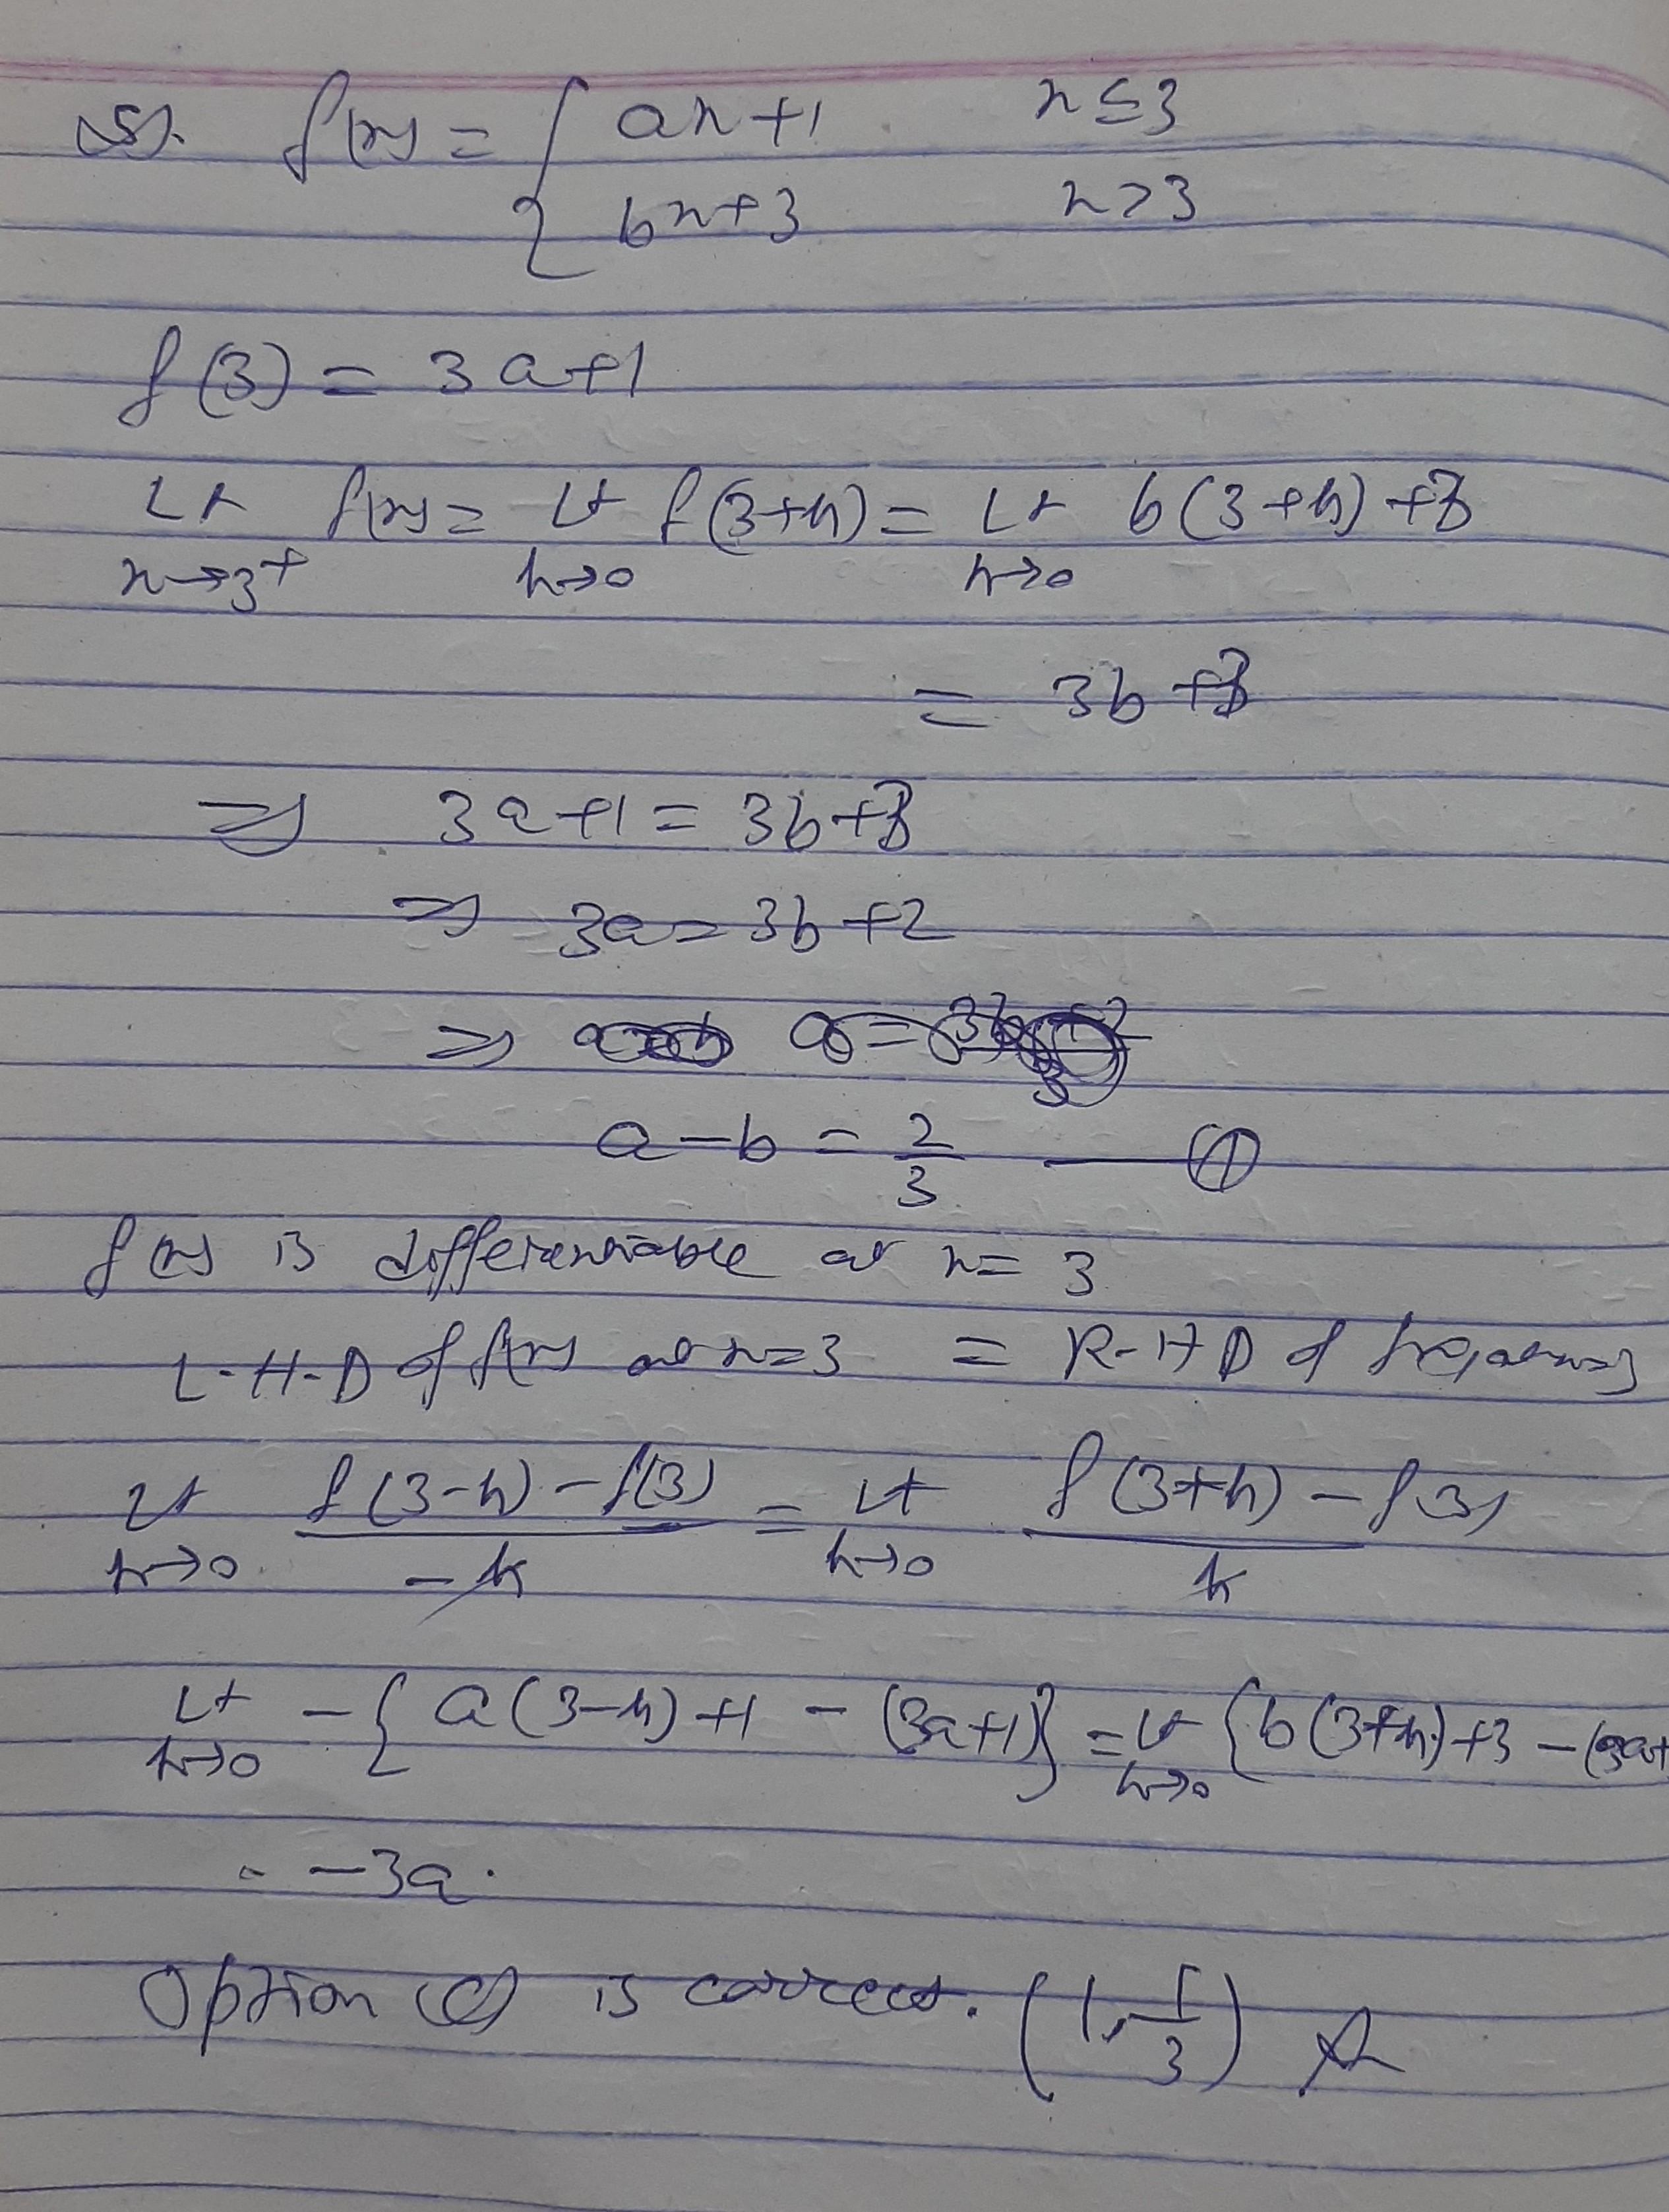 (5). f(x) = { ax+1    x ≤ 3
bx+3    x > 3
f(3) = 3a+1
Lt f(x) = Lt f(3+h) = Lt b(3+h)+3
x→3+    h→0    h→0
= 3b+3
⇒ 3a+1 = 3b+3
⇒ 3a = 3b+2
⇒
a-b = 2/3 — (1)
f(x) is differentiable at x = 3
L-H-D of f(x) at x=3 = R-H D of f(x) at x=3
Lt f(3-h) - f(3) / -h = Lt f(3+h) - f(3) / h
h→0    h→0
Lt -{ a(3-h)+1 - (3a+1)} = Lt {b(3+h)+3 - (3a+
h→0    h→0
= -3a.
Option (c) is correct. (1, 1/3)